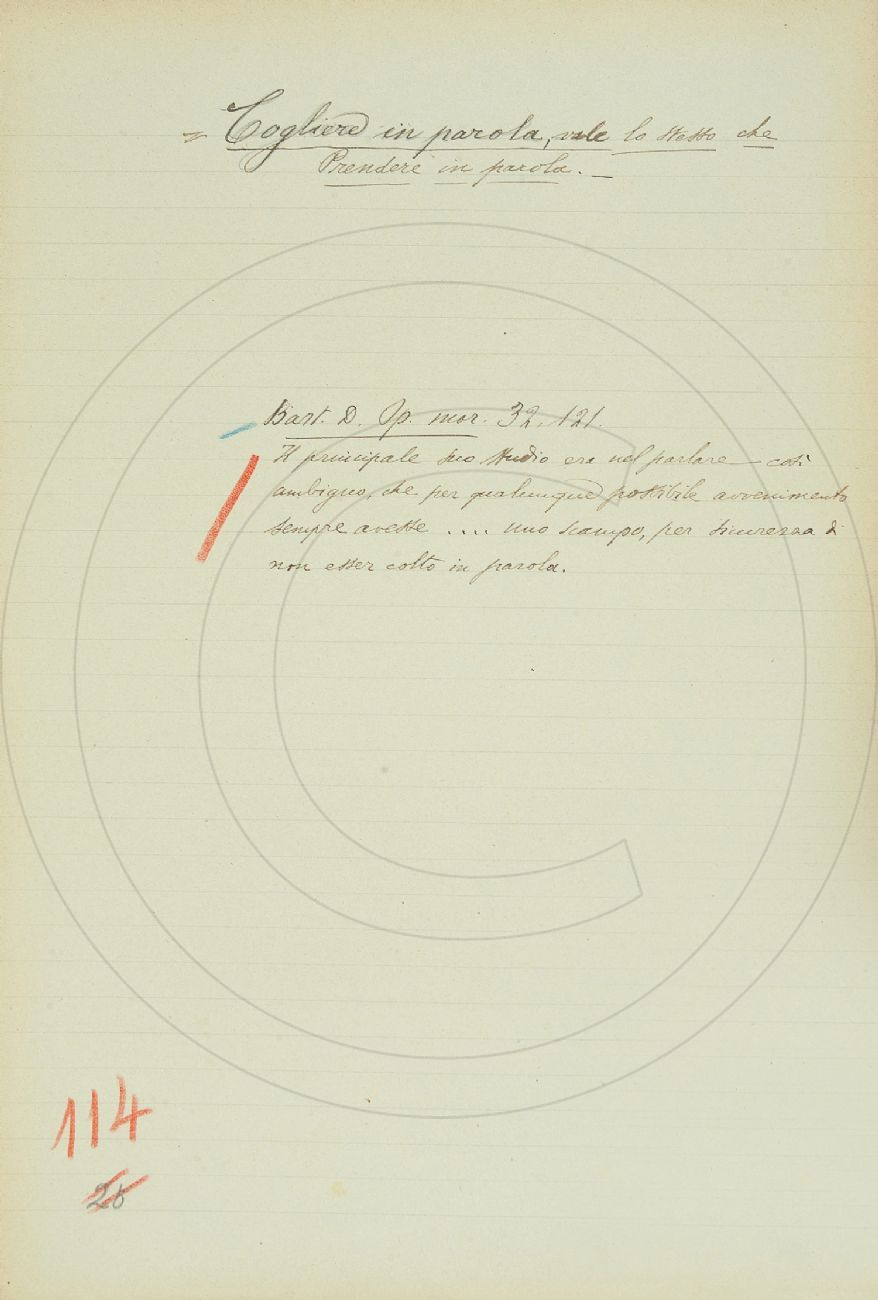 = Cogliere in parola, vale lo stesso che
Prendere in parola. _
Bart. D. Op. mor. 32. 121.
Il principale suo studio era nel parlare così
ambiguo, che per qualunque possibile avvenimento
sempre avesse .... uno scampo, per sicurezza di
non esser colto in parola.
114